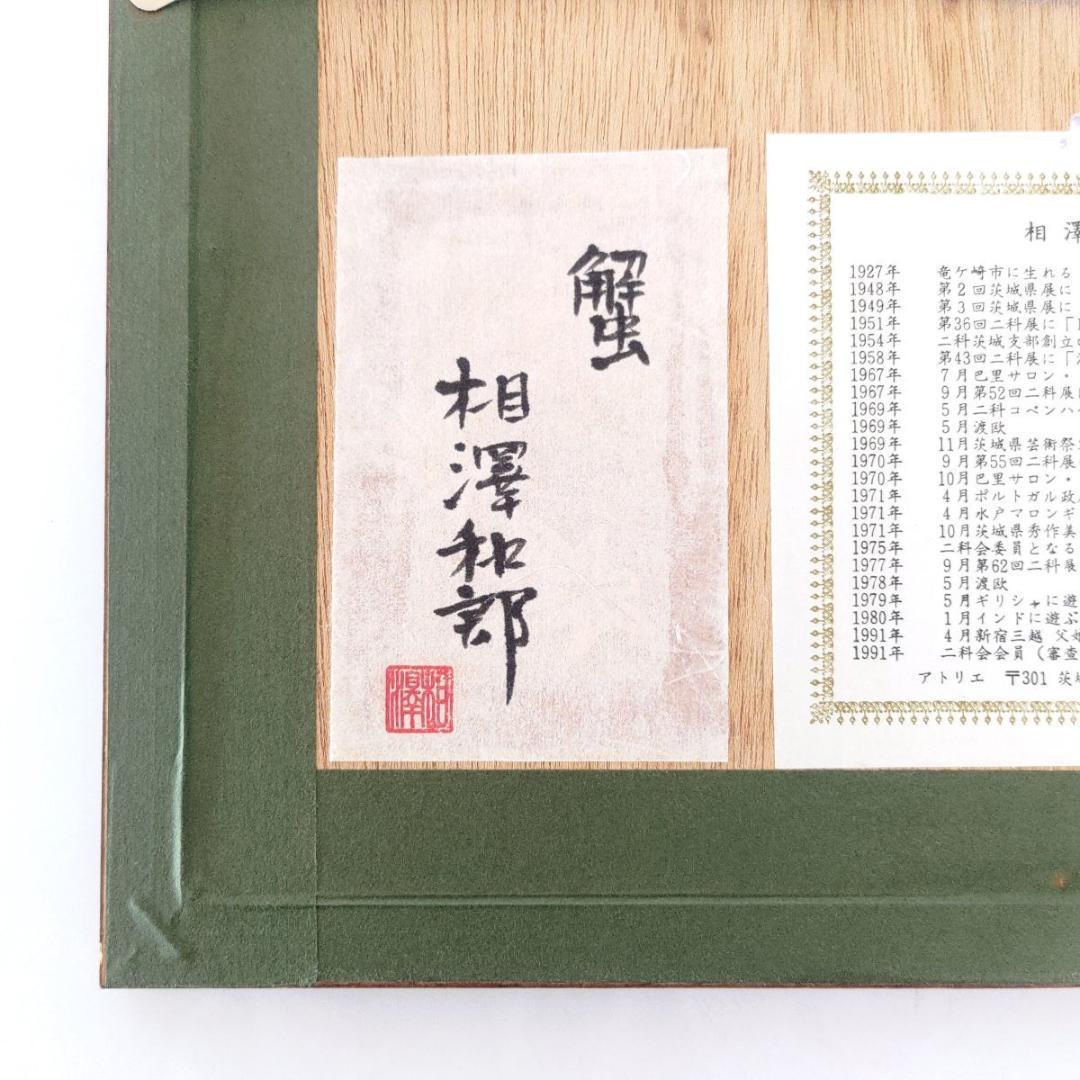 蟹
相澤和郎
相澤
相澤
1927年 竜ケ崎市に生れる
1948年 第2回茨城県展に
1949年 第3回茨城県展に
1951年 第36回二科展に「
1954年 二科茨城支部創立
1958年 第43回二科展に「
1967年 7月巴里サロン・
1967年 9月第52回二科展
1969年 5月二科コペンハ
1969年 5月渡欧
1969年 11月茨城県芸術祭
1970年 9月第55回二科展
1970年 10月巴里サロン・
1971年 4月ポルトガル政
1971年 4月水戸マロンギ
1971年 10月茨城県秀作美
1975年 二科会委員となる
1977年 9月第62回二科展
1978年 5月渡欧
1979年 5月ギリシャに遊
1980年 1月インドに遊ぶ
1991年 4月新宿三越 父
1991年 二科会会員(審査
アトリエ 〒301 茨